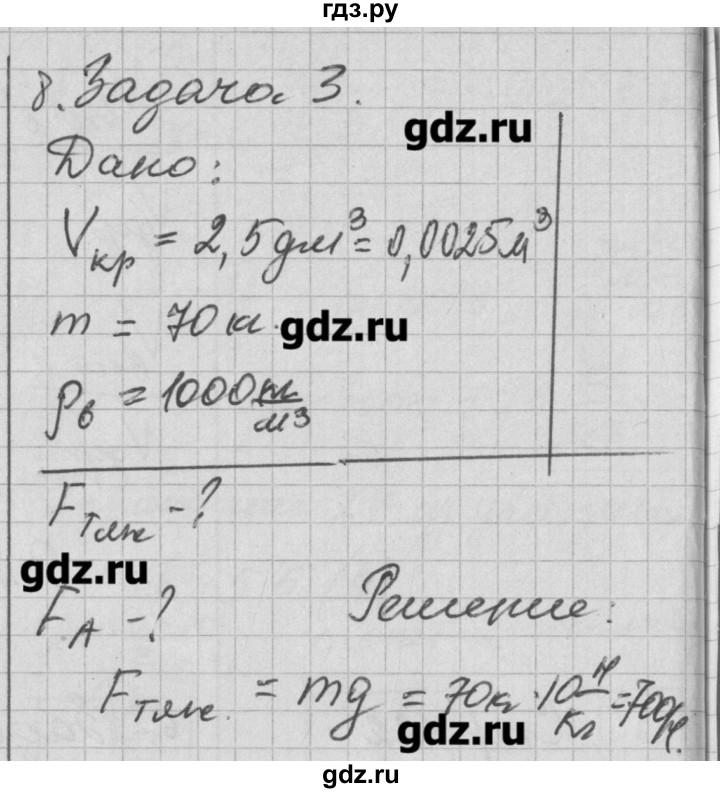 гдз.ру
8. Задача 3.
gdz.ru
Дано:
Vкр = 2,5 дм³ = 0,0025 м³
m = 70 кг.
gdz.ru
ρв = 1000 кг/м³
Fтяж - ?
gdz.ru
FА - ?
Решение:
Fтяж. = mg = 70 кг · 10 Н/кг = 700 Н.
gdz.ru
gdz.ru